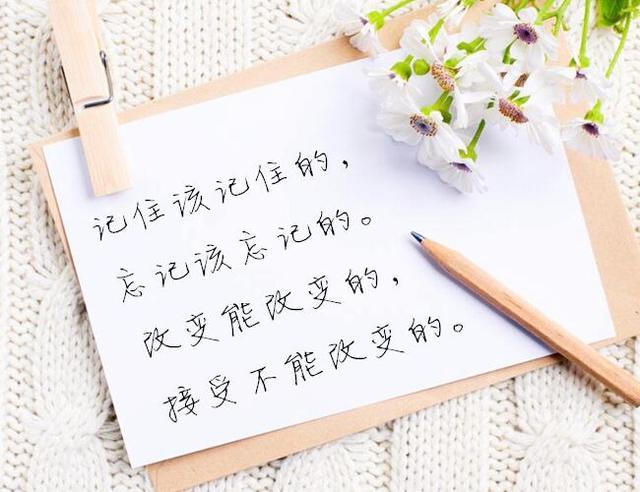 记住该记住的，
忘记该忘记的。
改变能改变的，
接受不能改变的。